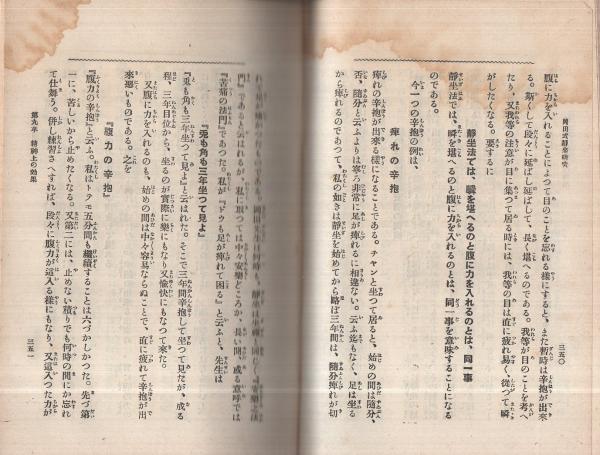 岡田式靜坐硏究
三五〇
腹に力を入れることによつて目のことを忘れる樣にすると、また暫時は辛抱が出來
る。斯くして段々に延ばして、長く堪へるのである。我等が目のことを考へ
たり、又我等の注意が目に集つて居る時には、我等の目は直に疲れ易く、從つて瞬
がしたくなる。要するに
靜坐法では、瞬を堪へるのと腹に力を入れるのとは、同一事
靜坐法では、瞬を堪へるのと腹に力を入れるのとは、同一事を意味することになる
のである。
今一つの辛抱の例は、
痺れの辛抱
痺れの辛抱が出來る樣になることである。チャンと坐つて居ると、始めの間は隨分、
否、隨分と云ふよりは寧ろ非常に足が痺れるに相違ない。云ふ迄もなく、足は坐る
から痺れるのであつて、私の如きは靜坐を始めてから略ぼ三年間は、隨分痺れが切
門』であると云はれるが、私に取つては中々安樂どころか、長い間、或る意味では
『苦痛の法門』であつた。私が『ドウも足が痺れて困る』と云ふと、先生は
『兎も角も三年坐つて見よ』
『兎も角も三年坐つて見よ』と云はれた。そこで三年間辛抱して坐つて見たが、成る
程、三年目位から、坐るのが實際に樂にもなり又愉快にもなつて來た。
又腹に力を入れるのも、始めの間は中々容易ならぬことで、直に疲れて辛抱が出
來惡いものである。之を
『腹力の辛抱』
『腹力の辛抱』と云ふ。私はトテモ五分間も繼續することはむづかしかつた。先づ第
一に、苦しいから止めたくなる。又第二には、止めない積りでも何時の間にか忘れ
て仕舞う。併し練習さへすれば、段々に腹力が這入る樣にもなり、又這入つた力が
第九章 精神上の効果
三五一